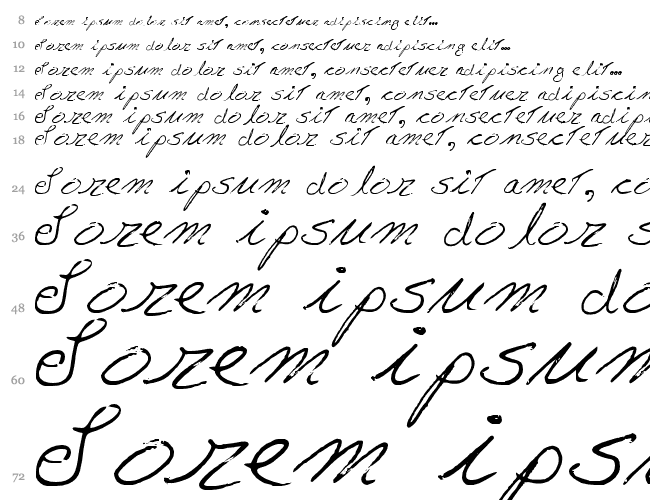 8 Lorem ipsum dolor sit amet, consectetuer adipiscing elit...
10 Lorem ipsum dolor sit amet, consectetuer adipiscing elit...
12 Lorem ipsum dolor sit amet, consectetuer adipiscing elit...
14 Lorem ipsum dolor sit amet, consectetuer adipiscin
16 Lorem ipsum dolor sit amet, consectetuer adipi
18 Lorem ipsum dolor sit amet, consectetuer
24 Lorem ipsum dolor sit amet, co
36 Lorem ipsum dolor s
48 Lorem ipsum do
60 Lorem ipsum
72 Lorem ipsu